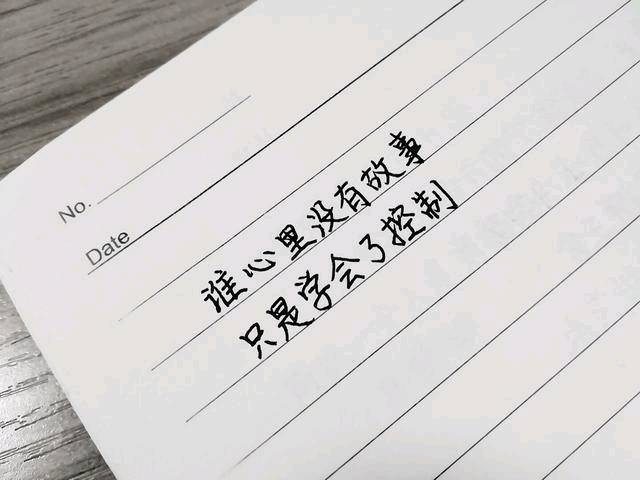 No.
Date
谁心里没有故事
只是学会了控制